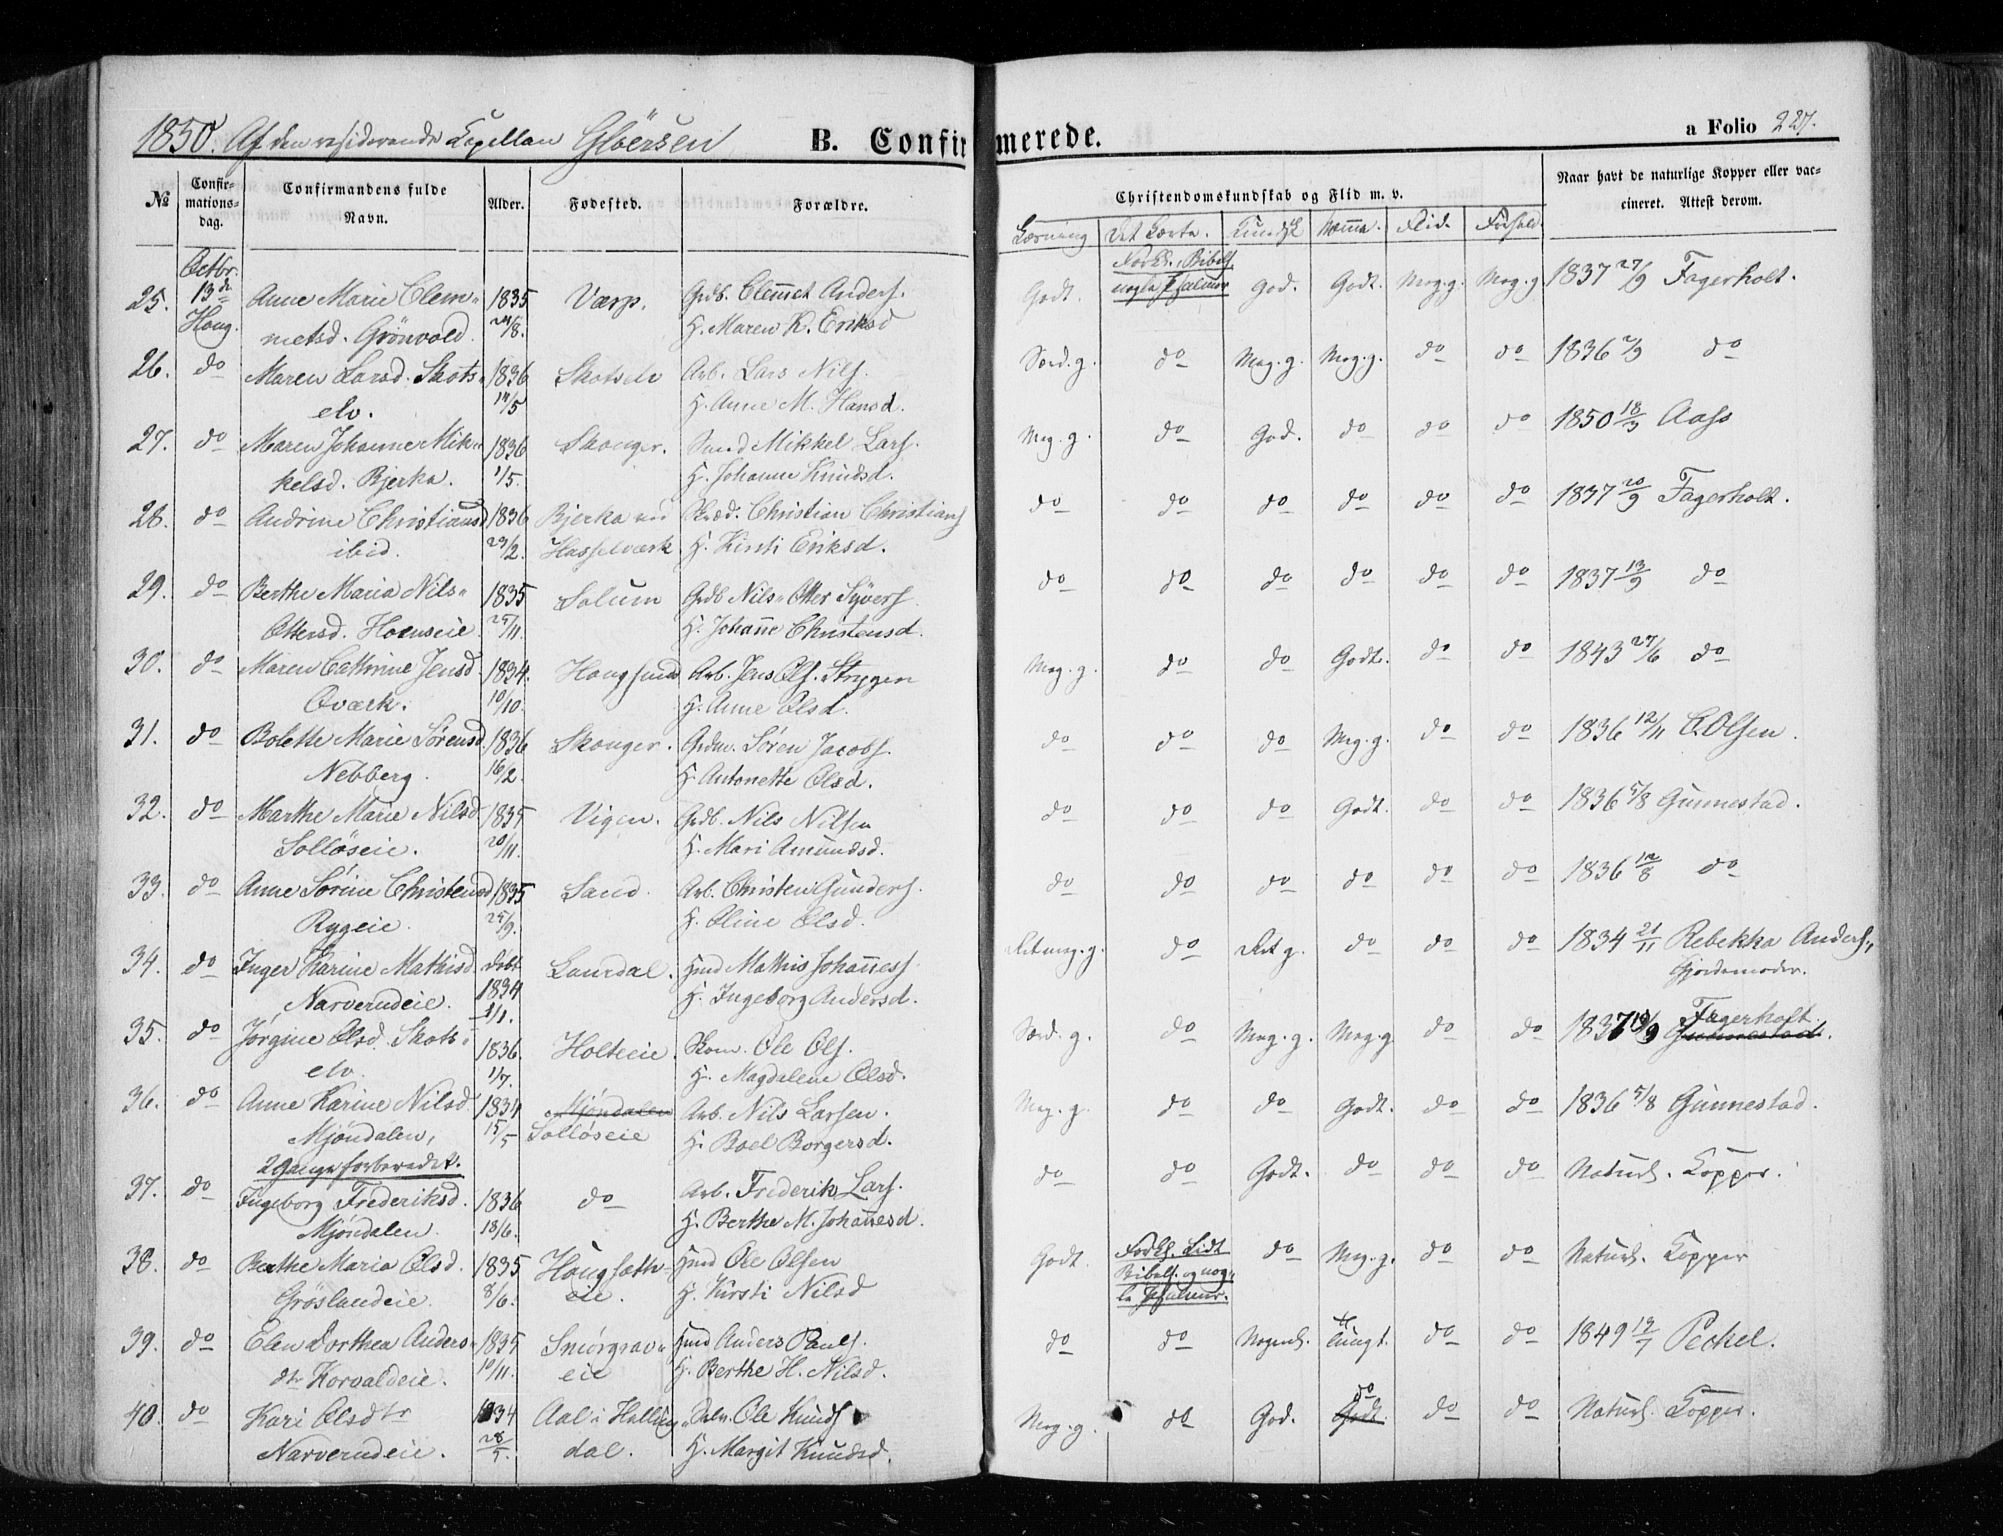 1850. Af den residerende Capellan
B. Confirmerede.
a Folio 227.
№
Confirmationsdag.
Confirmandens fulde Navn.
Alder.
Fodested.
Forældre.
Christendomskundskab og Flid m. v.
Naar havt de naturlige Kopper eller vaccineret. Attest derom.
Læsning Det Lærte. Kundsk. Nemme. Flid. Forhold.
Octbr.
25. 13de Anne Marie Clem- 1835 Værp. Grdb. Clemet Anders. Godt. Forkl., Bibelh. nogle Psalmer God. Godt. Meg. g. Meg. g. 1837 27/9 Fagerholt.
Haug. metsd. Grönvold. 24/8. H. Maren K. Eriksd
26. do Maren Larsd. Skots- 1836 Skotselv Arb. Lars Nils. Særd. g. do Meg. g. Meg. g. do do 1836 2/9 do
elv. 14/5 H. Anne M. Hansd.
27. do Maren Johanne Mik- 1836 Skonger. Smed Mikkel Lars. Meg. g. do God. do do do 1850 18/3 Aass
kelsd. Bjerka. 1/5. H. Johanne Knudsd.
28. do Andrine Christiansd 1836 Bjerka ved Skræd. Christian Christians do do do do do do 1837 20/9 Fagerholt.
ibid. 29/2. Hasselværk H. Kirsti Eriksd.
29. do Berthe Maria Nils- 1835 Solum Grdb Nils-Otter Syvers. do do do do do do 1837 13/9 do
Ottersd. Hornseie. 25/11. H. Johanne Christensd.
30. do Maren Cathrine Jensd. 1834. Haugsund Arb. Jens Ols. Strygen Meg. g. do do Godt. do do 1843 27/6 do
Qværk. 10/10. H. Anne Olsd.
31. do Bolette Marie Sørensd. 1836 Skonger. Grdm. Søren Jacobs. do do do Meg. g. do do 1836 12/11 C. Olsen.
Nebberg. 16/2. H. Antonette Olsd.
32. do Marthe Marie Nilsd 1835 Vigen. Grdb. Nils Nilsen do do do Godt. do do 1836 5/8 Gunnestad.
Solløseie. 20/11. H. Mari Amundsd.
33. do Anne Sörine Christensd 1835 Sand. Arb. Christen Gunders. do do do do do do 1836 12/8 do
Rygeie. 25/9. H. Oline Olsd.
34. do Inger Karine Mathisd. döbt Laurdal. Hmd Mathis Johanness. Ret meg. g. do Ret g. do do do 1834 21/11 Rebekka Anders.,
Narverudeie. 1834 1/1. H. Ingeborg Andersd. Gjordemoder.
35. do Jörgine Olsd. Skots- 1836. Holteeie. Skom. Ole Ols. Særd. g. do Meg. g. Meg. g do do 1837 13/9 Fagerholt. Gunnestad.
elv. 1/7. H. Magdalene Olsd.
36. do Anne Karine Nilsd 1834 Mjöndalen Arb. Nils Larsen. Meg. g. do do Godt. do do 1836 5/8 Gunnestad.
Mjöndalen, 15/5 Solløseie H. Boel Borgersd.
2 Gange forberedt.
37. do Ingeborg Frederiksd. 1836 do Arb. Frederik Lars. do do Godt. do do do Naturl. Kopper.
Mjöndalen. 18/6. H. Berthe M. Johannesd.
38. do Berthe Maria Olsd. 1835 Haugsæth- Hmd Ole Olsen Godt. Forkl. Lidt Bibelh. og nogle Psalmer. do Meg. g. do do Naturl. Kopper
Gröslandeie. 8/6. eie. H. Kirsti Nilsd
39. do Elen Dorthea Anders- 1835 Smörgrav- Hmd Anders Pauls. do do Nogenl. tungt. do do 1849 12/7 Peckel.
dtr Korvaldeie. 10/11. eie H. Berthe H. Nilsd.
40. do Kari Olsdtr 1834 Aal i Halling- Ole Knuds Meg. g. do God. do Godt. do do Naturl. Kopper.
Narverudeie. 28/5. dal. H. Margit Knudsd.